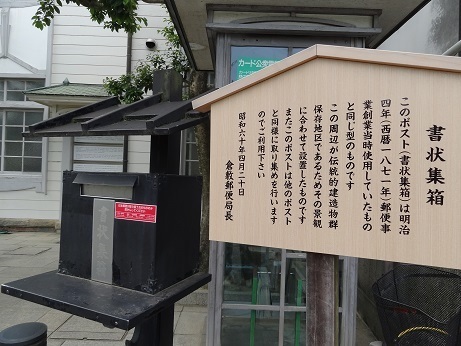 書状集箱
このポスト(書状集箱)は明治
四年(西暦一八七一年)郵便事
業創業当時使用していたもの
と同じ型のものです
この周辺が伝統的建造物群
保存地区であるためその景観
に合わせて設置したものです
またこのポストは他のポスト
と同様に取り集めを行います
のでご利用下さい
昭和六十年四月二十日
倉敷郵便局長